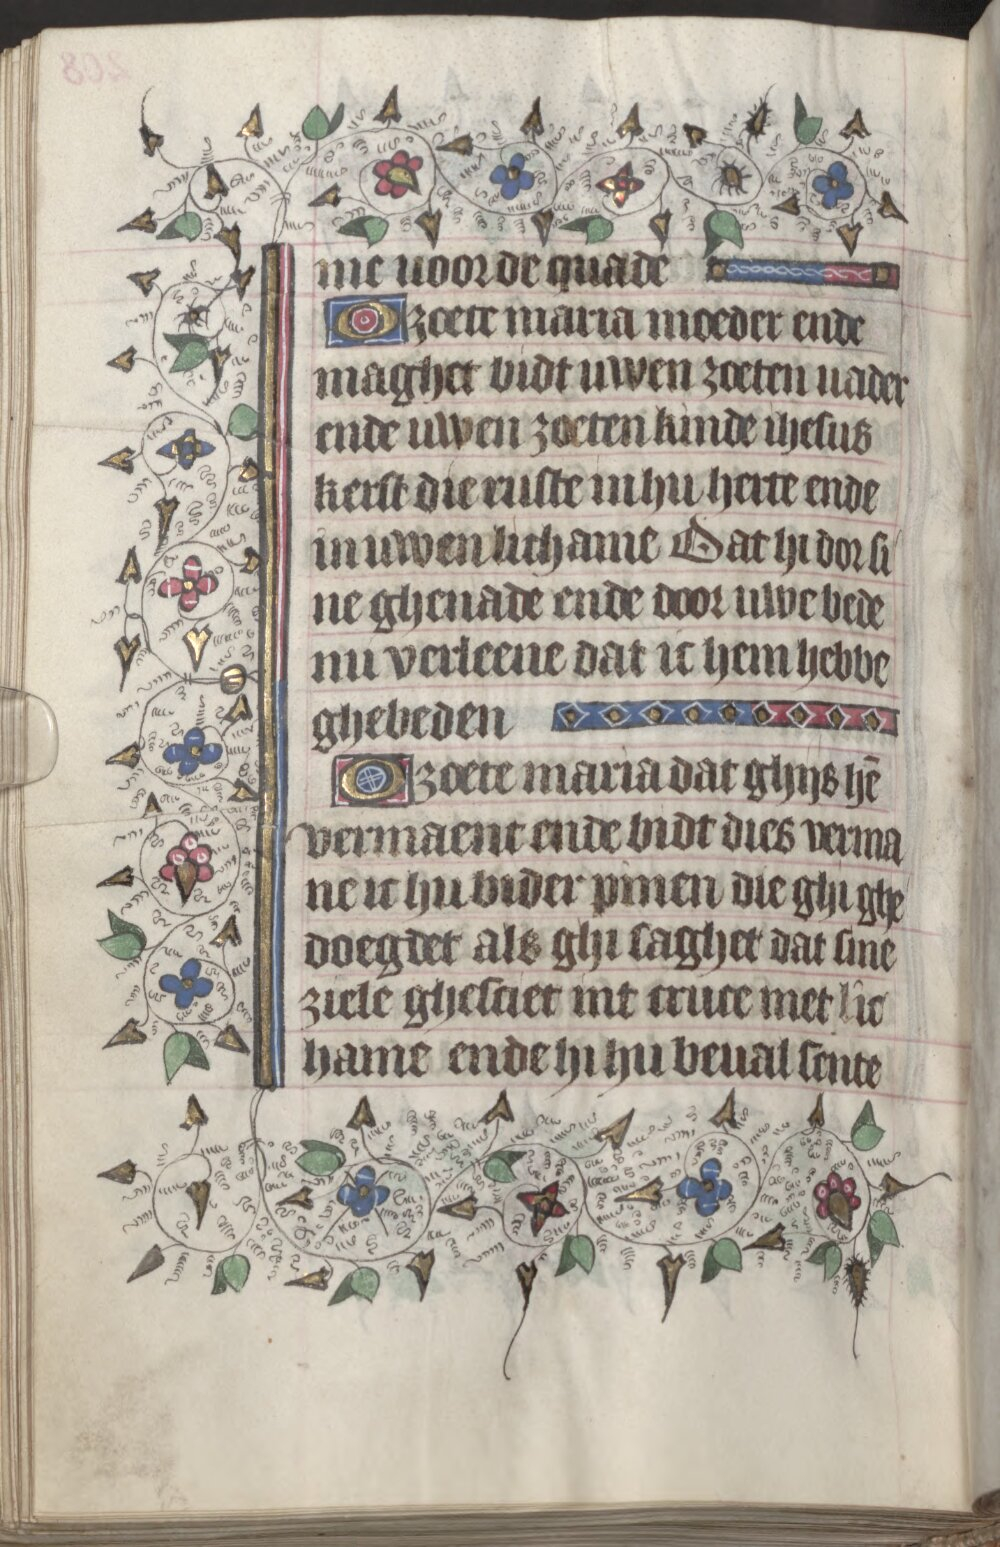 me uoor de quade
O zoete maria moeder ende
maghet bidt uwen zoeten uader
ende uwen zoeten kinde ihesus
kerst die ruste in hu herte ende
in uwen lichame Dat hi dor si
ne ghenade ende door uwe bede
nu verleene dat ic hem hebbe
ghebeden
O zoete maria dat ghijs hē
vermaent ende bidt dies verma
ne ic hu bider pinen die ghi ghe
doegdet als ghi saghet dat sine
ziele ghesciet int cruce met lic
hame ende hi hu beual sente